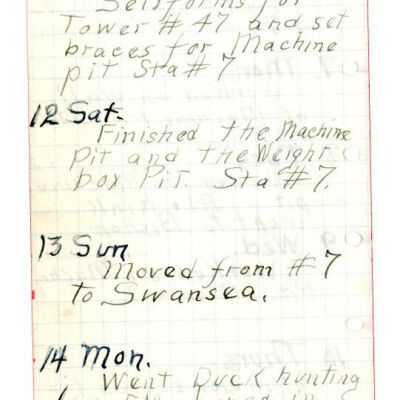 Set forms for
Tower # 47 and set
braces for Machine
pit Sta # 7
12 Sat.
Finished the Machine
Pit and the Weight
box Pit. Sta # 7.
13 Sun
Moved from # 7
to Swansea.
14 Mon.
Went Duck hunting